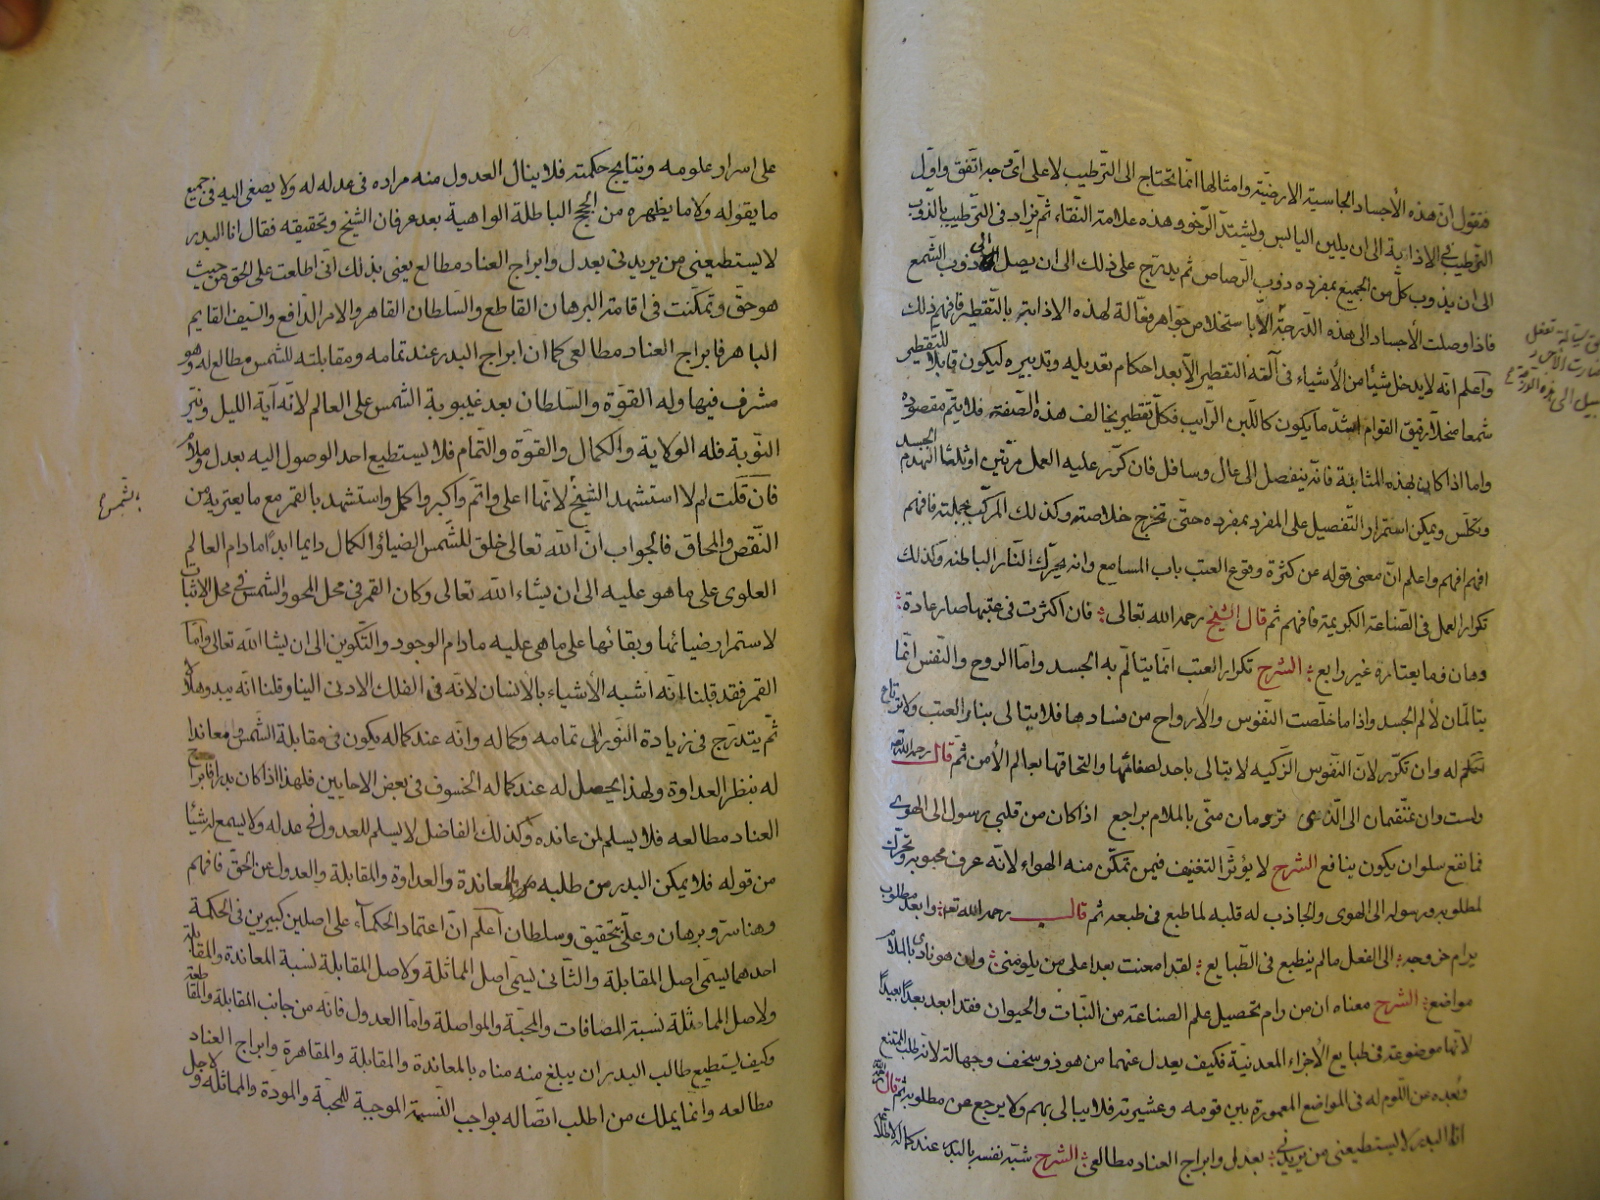 فنقول ان هذه الأجساد الجاسية الارضية وامثالها انما تحتاج الى الترطيب لا على اى وجه اتفق واول
الترطيب الاذابة الى ان يلين اليابس ويشتد الرخو وهذه علامة النقاء ثم يزاد فى الترطيب بالذوب
الى ان يذوب كل من الجميع بمفرده ذوب الرصاص ثم يدرج على ذلك الى ان يصل الى ذوب الشمع
فاذا وصلت الأجساد الى هذه الدرجة الا باستخلاص جواهر فعالة لهذه الاذابة بالتقطير فافهم ذلك
واعلم انه لا يدخل شيئا من الأشياء فى آلة التقطير الا بعد احكام تعديله وتدبيره ليكون قابلا للتقطير
شمعا منحلا رقيق القوام اشد ما يكون كاللبن الرايب فكل تقطير يخالف هذه الصفة فلا يتم مقصوده
واما اذا كان بهذه المثابة فانه ينفصل الى عال وسافل فان كرر عليه العمل مرتين او ثلثا انهدم الجسد
وتكلس ويمكن استمرار التفصيل على المفرد بمفرده حتى تخرج خلاصته وكذلك المركب بجملته فافهم
افهم افهم واعلم ان معنى قوله من كثرة وقوع العتب باب المسامع وانه يحرك النار الباطنه وكذلك
تكرار العمل فى الصناعة الكريمة فافهم ثم قال الشيخ رحمه الله تعالى فان اكثرت فى عتبها صار عادة
وهان فما يعتاده غير رايع الشرح تكرار العتب انما يتالم به الجسد واما الروح والنفس انما
يتالمان لألم الجسد واذا ما خلصت النفوس والارواح من فسادها فلا يبالى بنار العتب ولا ترتاح
تتكلم له وان تكرر لان النفوس الزكيه لا تبالى باحد لصفائها والتحاقها بعالم الأمن ثم قال رحمه الله تعه
ولست وان عنفتمان الى الذى ترومان منى بالملام براجع اذا كان من قلبى رسول الى الهوى
فما نفع سلوان يكون بنافع الشرح لا يؤثر التعنيف فيمن تمكن منه الهواء لانه عرف محبوبه وتحرك
لمطلوبه ورسوله الى الهوى والجاذب له قلبه لما طبع فى طبعه ثم قال رحمه الله تعه وابعد مطلوب
يرام خروجه الى الفعل ما لم ينطبع فى الطبايع لقد امعنت بعدا على من يلومنى وان هو نادى بالملام
مواضع الشرح معناه ان من رام تحصيل علم الصناعة من النبات والحيوان فقد ابعد بعدا بعيدا
لانها موضوعة فى طبايع الأجزاء المعدنية فكيف يعدل عنهما من هو ذو سخف وجهالة لانه طلب الممتنع
وبعده من اللوم له فى المواضع المعمورة بين قومه وعشيرته فلا يبالى بهم ولا يرجع عن مطلوبه ثم قال
انا البدر لا يستطيعنى من يريدنى بعدل وابراج العناد مطالعى الشرح شبه نفسه بالبدر عند كماله لاطلاعه
على اسرار علومه ونتايج حكمته فلا ينال العدول منه مراده فى عدله له ولا يصغى اليه فى جميع
ما يقوله ولا ما يظهره من الحجج الباطلة الواهية بعد عرفان الشيخ وتحقيقه فقال انا البدر
لا يستطيعنى من يريدنى بعدل وابراج العناد مطالع يعنى بذلك انى اطلعت على الحق من حيث
هو حق وتمكنت فى اقامة البرهان القاطع والسلطان القاهر والامر الدافع والسيف القايم
الباهر فابراج العناد مطالعى كما ان ابراج البدر عند تمامه ومقابلته للشمس مطالع له وهو
مشرف فيها وله القوة والسلطان بعد غيبوبة الشمس على العالم لانه آية الليل ونير
النوبة فله الولاية والكمال والقوة والتمام فلا يستطيع احد الوصول اليه بعدل وملام
فان قلت لم لا استشهد الشيخ لانها اعلى واتم واكبر واكمل واستشهد بالقمر مع ما يعتريه من
بالشمس
النقص والمحاق فالجواب ان الله تعالى خلق للشمس الضياء والكمال دايما ابدا ما دام العالم
العلوى على ما هو عليه الى ان يشاء الله تعالى وكان القمر فى محل المحو والشمس فى محل الاثبات
لاستمرار ضيائها وبقائها على ما هى عليه ما دام الوجود والتكوين الى ان يشا الله تعالى واما
القمر فقد قلنا انه اشبه الأشياء بالانسان لانه فى الفلك الادنى الينا وقلنا انه يبدو هلالا
ثم يتدرج فى زيادة النور الى تمامه وكماله وانه عند كماله يكون فى مقابلة الشمس معاندا
له بنظر العداوة ولهذا يحصل له عند كماله الخسوف فى بعض الاحايين فلهذا اذا كان بدرا فابراج
العناد مطالعه فلا يسلم لمن عانده وكذلك الفاضل لا يسلم للعدول فى عدله ولا يسمع له شيئا
من قوله فلا يمكن البدر من طلبه بالمعاندة والعداوة والمقابلة والعدول عن الحق فافهم
وهنا سر وبرهان وعلى تحقيق وسلطان اعلم ان اعتماد الحكماء على اصلين كبيرين فى الحكمة
احدهما يسمى اصل المقابلة والثانى يسمى اصل المماثلة ولاصل المقابلة نسبة المعاندة والمقابلة
ولاصل المماثلة نسبة المصافات والمحبة والمواصلة واما العدول فانه من جانب المقابلة والمقاطعة
وكيف يستطيع طالب البدر ان يبلغ منه مناه بالمعاندة والمقابلة والمقاهرة وابراج العناد
مطالعه وانما يملك من اطلب اتصاله بواجب النسبة الموجبة للمحبة والمودة والمماثلة ولاجل